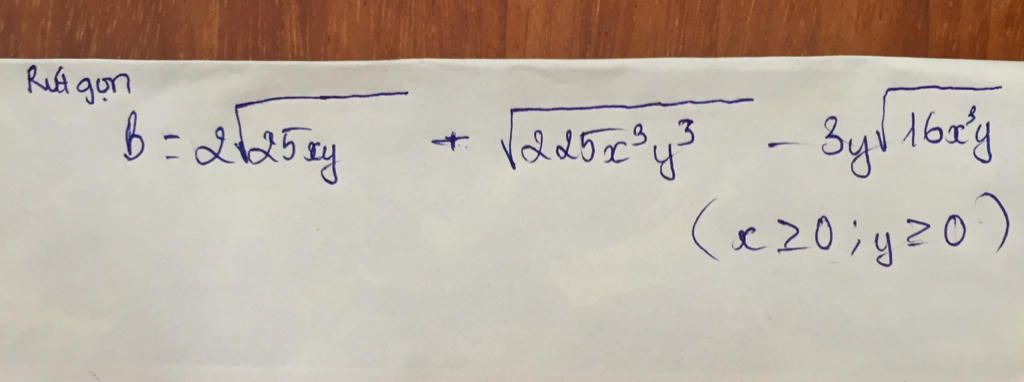 Rút gọn
B = 2√25xy + √225x³y³ - 3y√16x³y
(x ≥ 0 ; y ≥ 0)